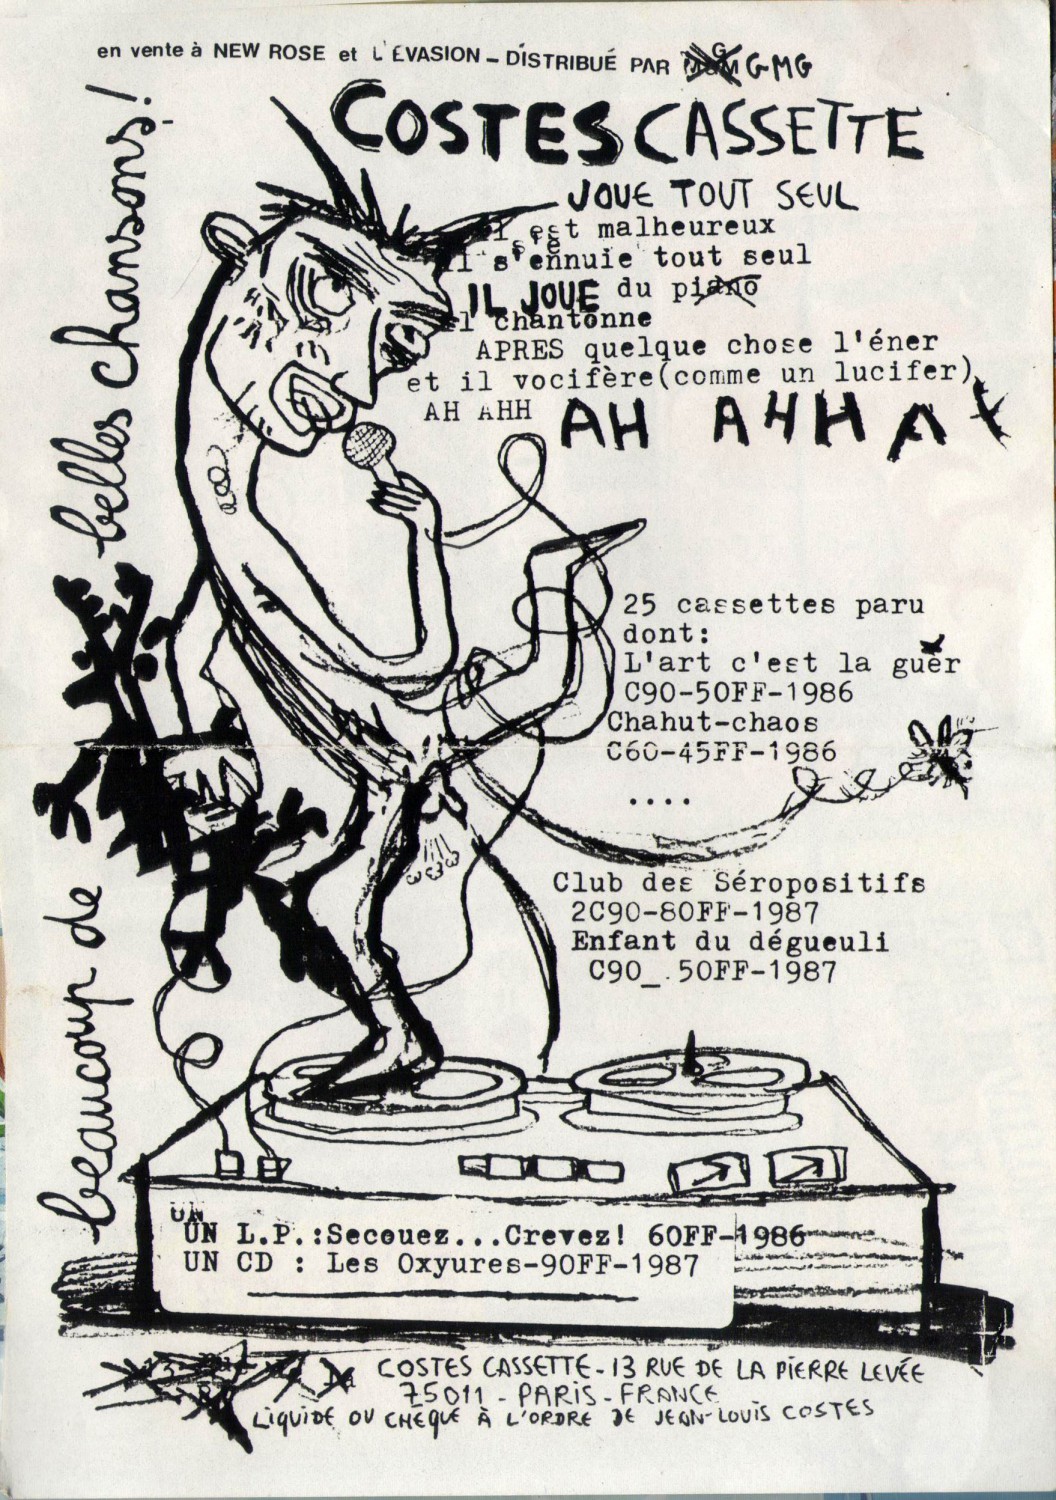 en vente à NEW ROSE et L'ÉVASION - DISTRIBUÉ PAR GMG
COSTES CASSETTE
JOUE TOUT SEUL
il est malheureux
il s'ennuie tout seul
IL JOUE du piano
il chantonne
APRES quelque chose l'éner
et il vocifère(comme un lucifer)
AH AHH AH AHHA
beaucoup de belles chansons!
25 cassettes paru
dont:
L'art c'est la guer
C90-50FF-1986
Chahut-chaos
C60-45FF-1986
....
Club des Séropositifs
2C90-80FF-1987
Enfant du dégueuli
C90_.50FF-1987
UN
UN L.P.:Secouez...Crevez! 60FF-1986
UN CD : Les Oxyures-90FF-1987
COSTES CASSETTE - 13 RUE DE LA PIERRE LEVÉE
75011 - PARIS - FRANCE
LIQUIDE OU CHEQUE À L'ORDRE DE JEAN-LOUIS COSTES